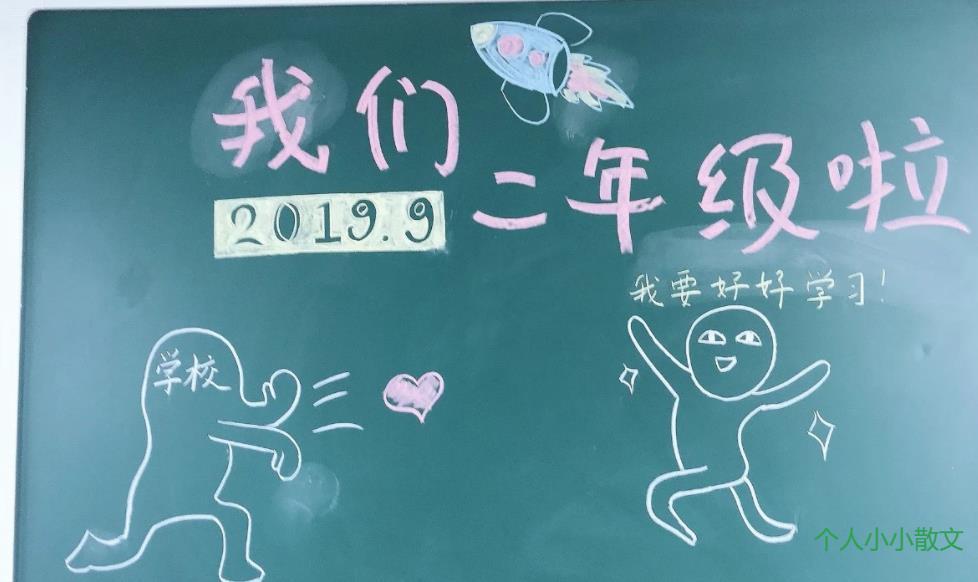 我们
二年级啦
2019.9
我要好好学习！
学校
个人小小散文